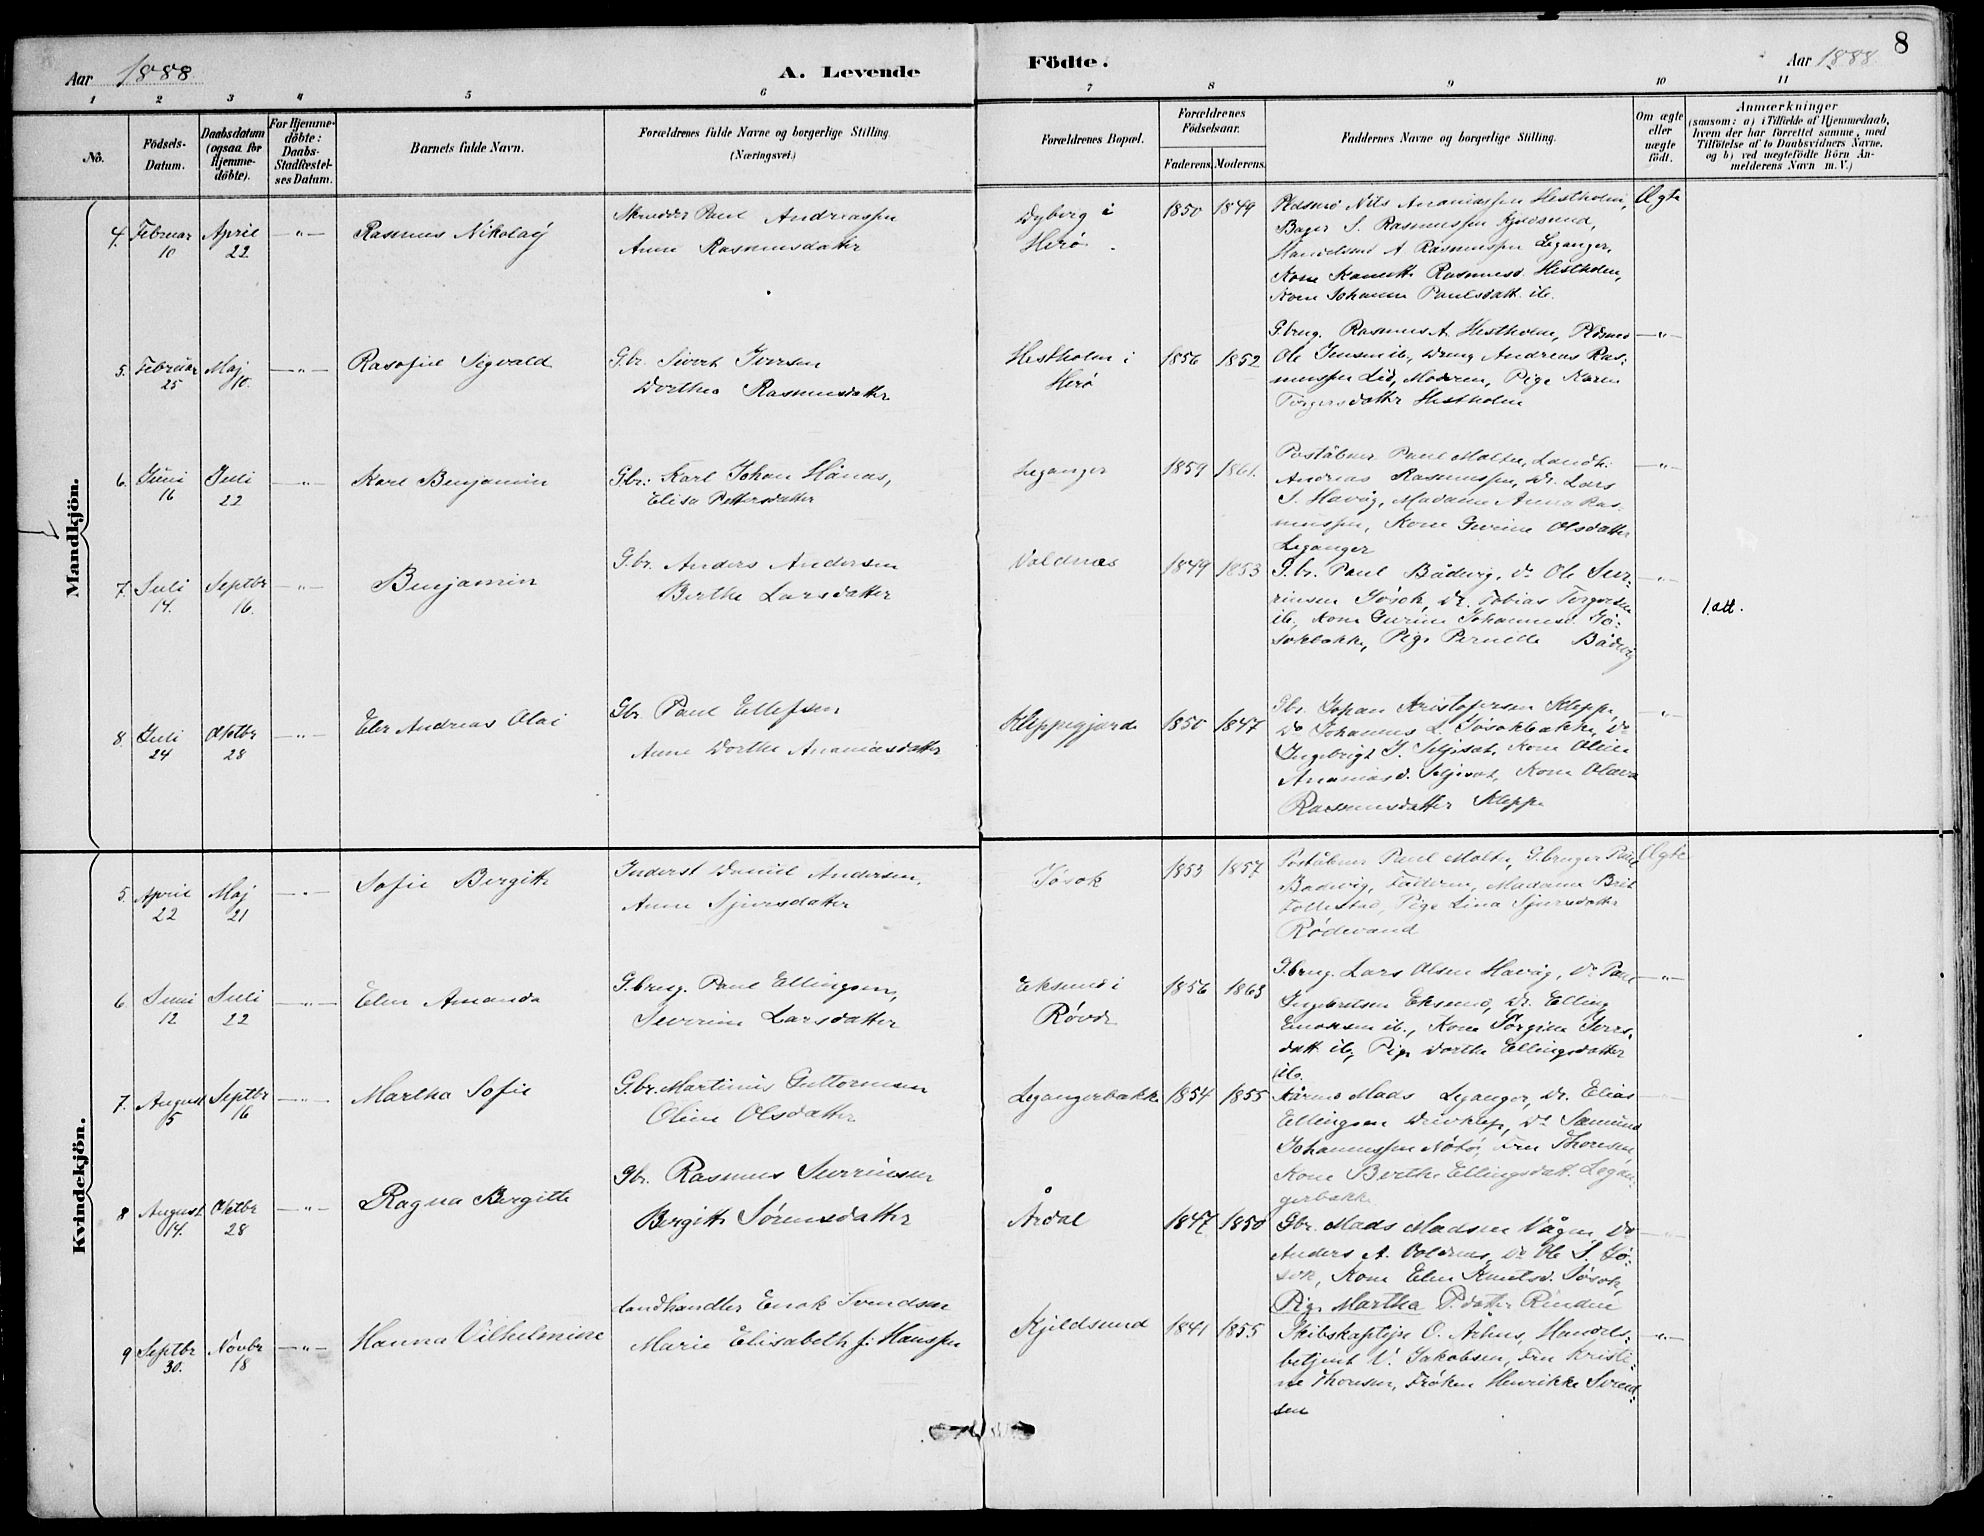 8
Aar 1888
A. Levende
Födte.
Aar 1888.
1 2 3 4 5 6 7 8 9 10 11
No.
Födsels-
Datum.
Daabsdatum
(ogsaa for
Hjemme-
döbte).
For Hjemme-
döbte:
Daabs-
Stadfæstel-
ses Datum.
Barnets fulde Navn.
Forældrenes fulde Navne og borgerlige Stilling.
(Næringsvei.)
Forældrenes Bopæl.
Forældrenes
Födselsaar.
Faderens. Moderens.
Faddernes Navne og borgerlige Stilling.
Om ægte
eller
uægte
födt.
Anmærkninger
(saasom: a) i Tilfælde af Hjemmedaab,
hvem der har forrettet samme, med
Tilföielse af to Daabsvidners Navne,
og b) ved uægtefödte Börn An-
melderens Navn m. V.)
Mandkjön.
4. Februar 10 April 22 -"- Rasmus Nikolay
Skrædder Paul Andreassen
Anne Rasmusdatter
Dyberg i
Herø.
1850 1849
Nils Ananiassen Hestholm,
Bager S. Rasmussen Kjeldsund,
Handelsmd A Rasmussen Leganger,
Kone Rasmusd. Hestholm,
Kone Johanna Paulsdatt. ib.
Ægte
5. Februar 25 Maj 10. -"- Rasofie Sigvald
Gbr. Sivert Iversen
Dorthea Rasmusdatter
Hestholm i
Herø
1856 1852
G.brug. Rasmus A. Hestholm,
Ole Jensen ib, Dreng Andreas Ras-
mussen Lid, Moderen, Pige Karen
Torgersdatter Hestholm
-"-
6. Juni 16 Juli 22 -"- Karl Benjamin
Gbr: Karl Johan Hånas,
Elisa Pettersdatter
Leganger
1859 1861.
Poståbner Paul Molte, Landh.
Andreas Rasmussen, Do. Lars
S. Havåg, Madame Anna Ras-
mussen, Kone Gurine Olsdatter
Leganger
-"-
7. Juli 14. Septbr 16. -"- Benjamin
G.br. Anders Andersen
Berthe Larsdatter
Voldnæs
1849 1853
G.br. Paul Bådvig, Do Ole Sev-
rinsen Jøsok, Do. Tobias Torgersen
ib, Kone Gurine Johannesd. Jø-
sokbakke, Pige Pernelle Bådvig
-"-
1. att.
8. Juli 24 Oktbr 28 -"- Eler Andreas Olai
Gbr. Paul Ellefsen
Anne Dorthe Ananiasdatter
Kleppegjerde
1850 1847
Gbr. Johan Kristofersen Kleppe,
Do Johannes L. Jøsokbakke, Do
Ingebrigt J. Seljeset, Kone Oline
Ananiasd. Seljeset, Kone Olava
Rasmusdatter Kleppe
-"-
Kvindekjön.
5. April 22 Maj 21 -"- Sofie Bergitte
Inderst Daniel Andersen,
Anne Sjursdatter
Jøsok
1853 1857
Poståbner Paul Molte, G.bruger Paul
Badvig, Faderen, Madame Brit
Follestad, Pige Lina Sjursdatter
Rødevand
Ægte
6. Juni 12 Juli 22 -"- Elen Amanda
G.brug. Paul Ellingsen,
Severine Larsdatter
Eksund i
Røvde
1856 1863
G.brug. Lars Olsen Havåg, Do Paul
Ingebretsen Eksund, Do. Elling
Enoksen ib., Kone Jørgine Ivers-
datt. ib, Pige Dorthe Ellingsdatter
ib.
-"-
7. August 5 Septbr 16 -"- Martha Sofie
G.br. Martinus Guttormsen
Oline Olsdatter
Legangerbakke
1854 1855
Mads Leganger, Do. Elias
Ellingsen Driveklep, Do Samund
Johannessen Nøtø, Fru Thoresen
Kone Berthe Ellingsdatt. Legan-
gerbakke
8 August 14. Oktbr 28 -"- Ragna Bergitte
Gbr. Rasmus Severinsen
Bergitte Sørensdatter
Årdal
1847 1850
Gbr. Mads Madsen Vågen, Do
Anders A. Voldnes, Do Ole S. Jø-
sok, Kone Elen Knutsd. Jøsok,
Pige Martha P.datter Rinden
9 Septbr 30. Novbr 18 -"- Hanna Vilhelmine
Landhandler Enok Svendsen
Marie Elisabeth f. Hanssen
Kjeldsund
1841 1855
Skibskaptejn O. Århus, Handels-
betjent V. Jakobsen, Fru Kristi-
ne Thoresen, Frøken Henrikke Svend-
sen
-"-